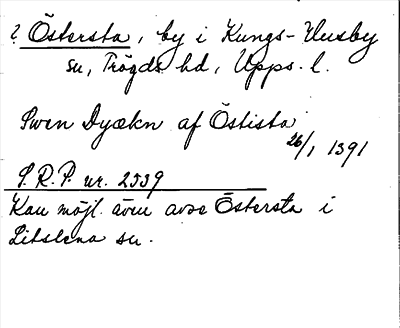 ? Östersta, by i Kungs-Husby
sn, Trögds hd, Upps. l.
Swen Dyækn af Östista
26/1 1391
S.R.P. nr. 2539
Kan möjl. även avse Östersta i
Litslena sn.